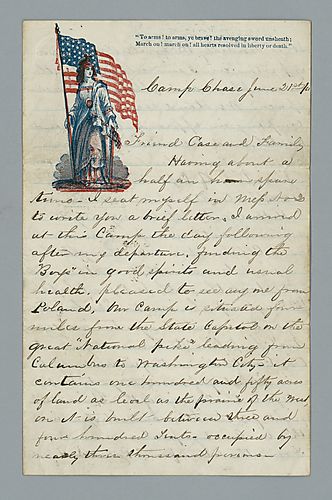 "To arms! to arms, ye brave! the avenging sword unsheath;
March on! march on! all hearts resolved in liberty or death."
Camp Chase June 21st
Friend Case and Family
Having about a
half an hour spare
time. I seat myself in Mess No 2
to write you a brief letter. I arrived
at this Camp the day following
after my departure, finding the
"Boys" in good spirits and usual
health, pleased to see any one from
Poland, Our Camp is situated four
miles from the State Capitol on the
great "National pike" leading from
Columbus to Washington City - it
contains one hundred and fifty acres
of land as level as the prairie of the West
in it is built between three and
four hundred Tents - occupied by
nearly three thousand persons